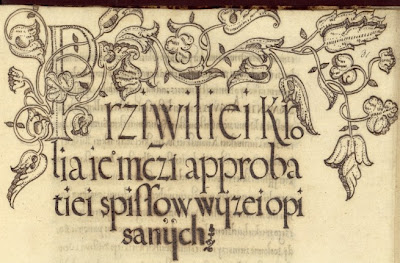 Prziwiliei Kro
lia ieº mczi approba
tiei spiſſow wyzei opi
sanÿch